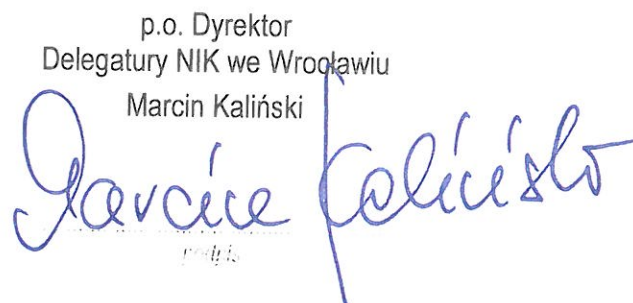 p.o. Dyrektor
Delegatury NIK we Wrocławiu
Marcin Kaliński
Marcin Kaliński
podpis